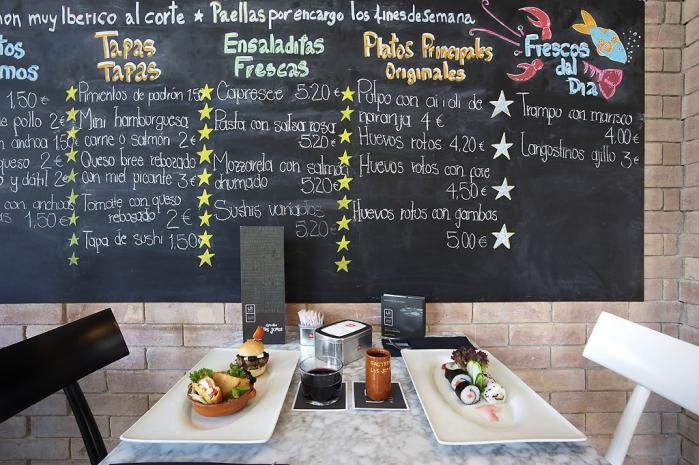 mon muy Iberico al corte ★ Paellas por encargo los fines de semana
Tapas
Tapas
Pimientos de padrón 1.50
Mini hamburguesa
carne o salmón 2€
Queso bree rebozado
con miel picante 3€
Tomate con queso
rebosado 2€
Tapa de sushi 1,50€
Ensaladitas
Frescas
Capresee 5.20€
Pasta con salsa rosa
5.20€
Mozzarela con salmon
ahumado 5.20€
Sushis variados
5.20€
Platos Principales
Originales
Pulpo con ai i oli de
naranja 4€
Huevos rotos 4.20€
Huevos rotos con
4,50€
Huevos rotos con gambas
5,00€
Frescos
del
Dia
Trampo con marisco
4.00€
Langostinos ajillo 3€
tos
mos
1,50€
de pollo 2€
anchoa 1.50
queso 2€
y dátil 2€
con anchoas
1,50€